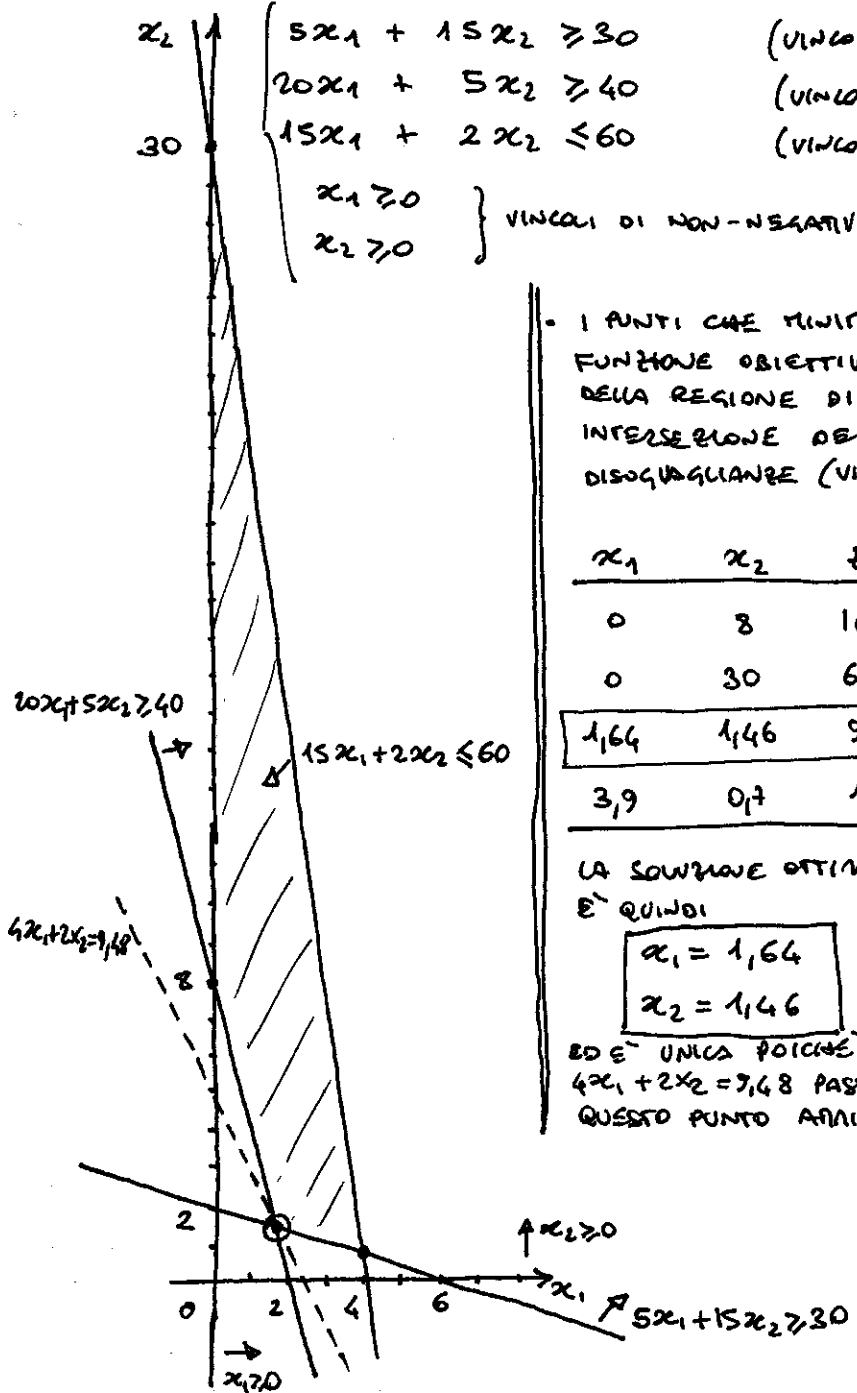 x₂
5x₁ + 15x₂ ≥ 30 (VINCO
20x₁ + 5x₂ ≥ 40 (VINCO
30
15x₁ + 2x₂ ≤ 60 (VINCO
x₁ ≥ 0
x₂ ≥ 0
} VINCOLI DI NON-NEGATIV
• I PUNTI CHE MINI
FUNZIONE OBIETTIV
DELLA REGIONE DI
INTERSEZIONE DE
DISUGUAGLIANZE (VI
x₁ x₂
0 8 1
0 30 6
1,64 1,46 9
3,9 0,7 1
LA SOLUZIONE OTTI
E` QUINDI
x₁ = 1,64
x₂ = 1,46
ED E` UNICA POICHE
4x₁ + 2x₂ = 9,48 PAS
QUESTO PUNTO
20x₁ + 5x₂ ≥ 40
15x₁ + 2x₂ ≤ 60
4x₁ + 2x₂ = 9,48
8
2
x₂ ≥ 0
0 2 4 6 x₁
5x₁ + 15x₂ ≥ 30
x₁ ≥ 0